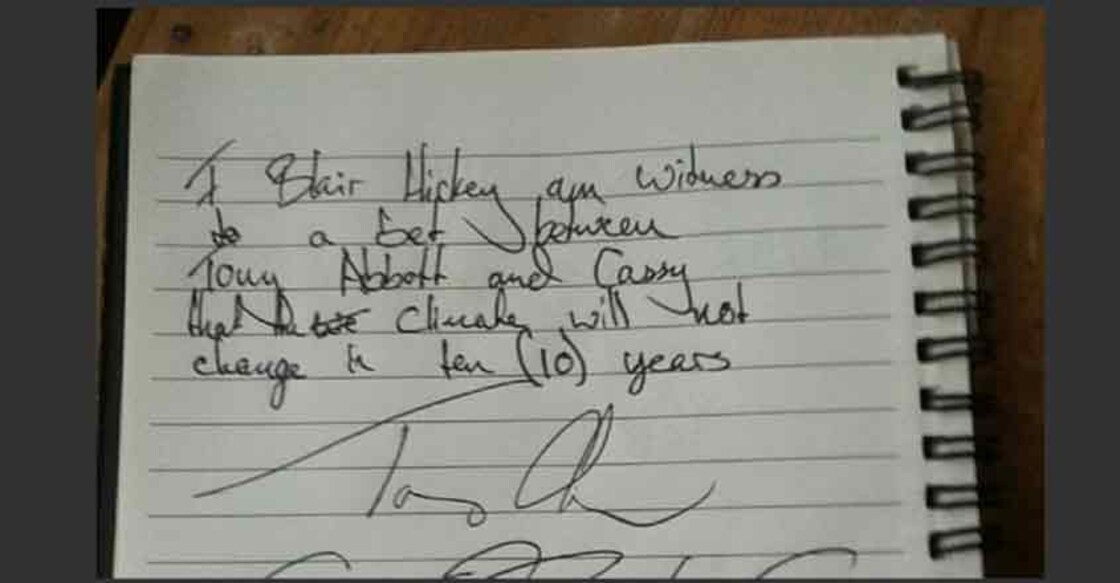 I Blair Hickey am witness
to a bet between
Tony Abbott and Cassy
that the climate will not
change in ten (10) years
Tony